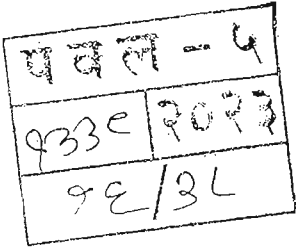 पवल - ५
१३३९ २०२३
१६/३८